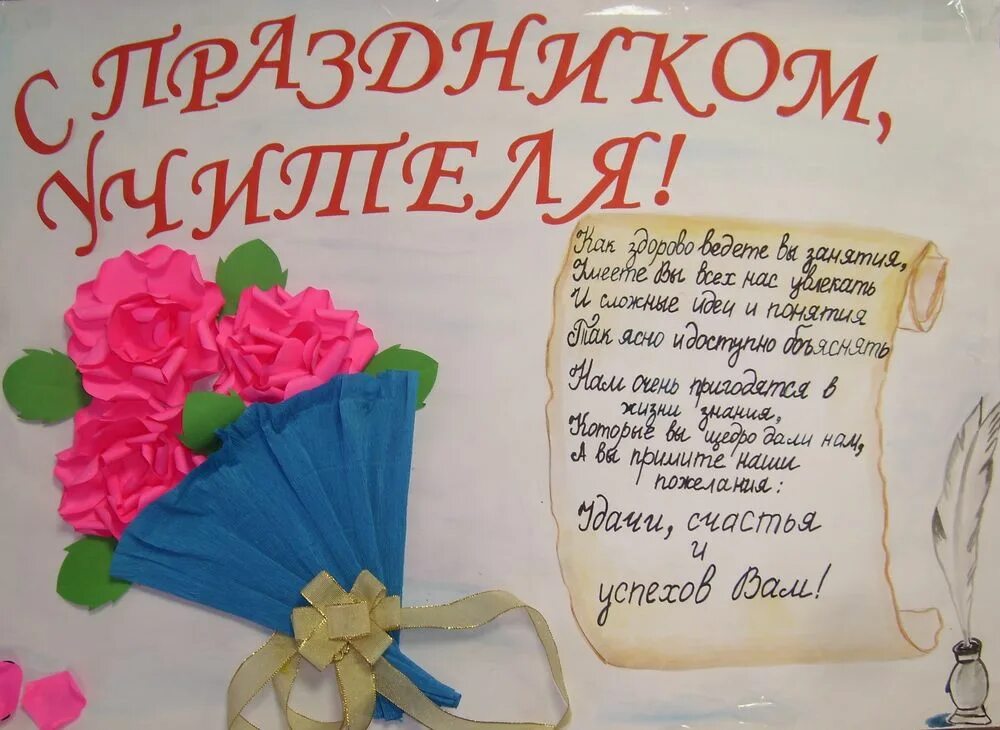 С ПРАЗДНИКОМ,
УЧИТЕЛЯ!
Как здорово ведете вы занятия,
Умеете Вы всех нас увлекать
И сложные идеи и понятия
Так ясно и доступно объяснять
Нам очень пригодятся в
жизни знания,
Которые вы щедро дали нам,
А вы примите наши
пожелания:
Удачи, счастья
и
успехов Вам!